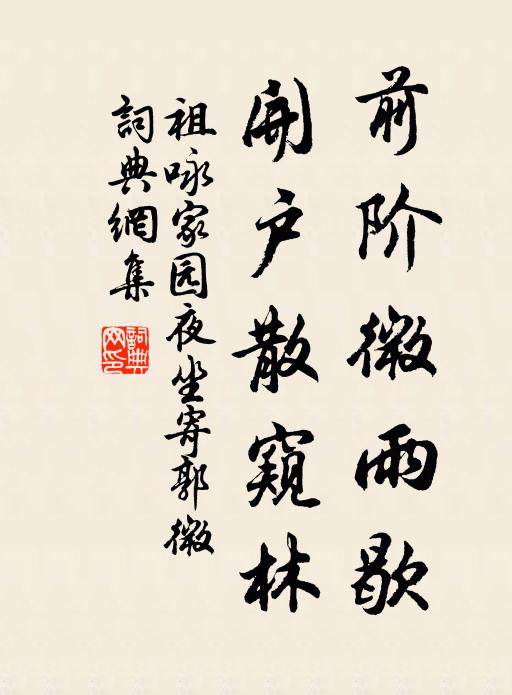 前阶微雨歇
開户散窺林
祖咏家园夜坐寄郭微
詞典網集
詞典网印